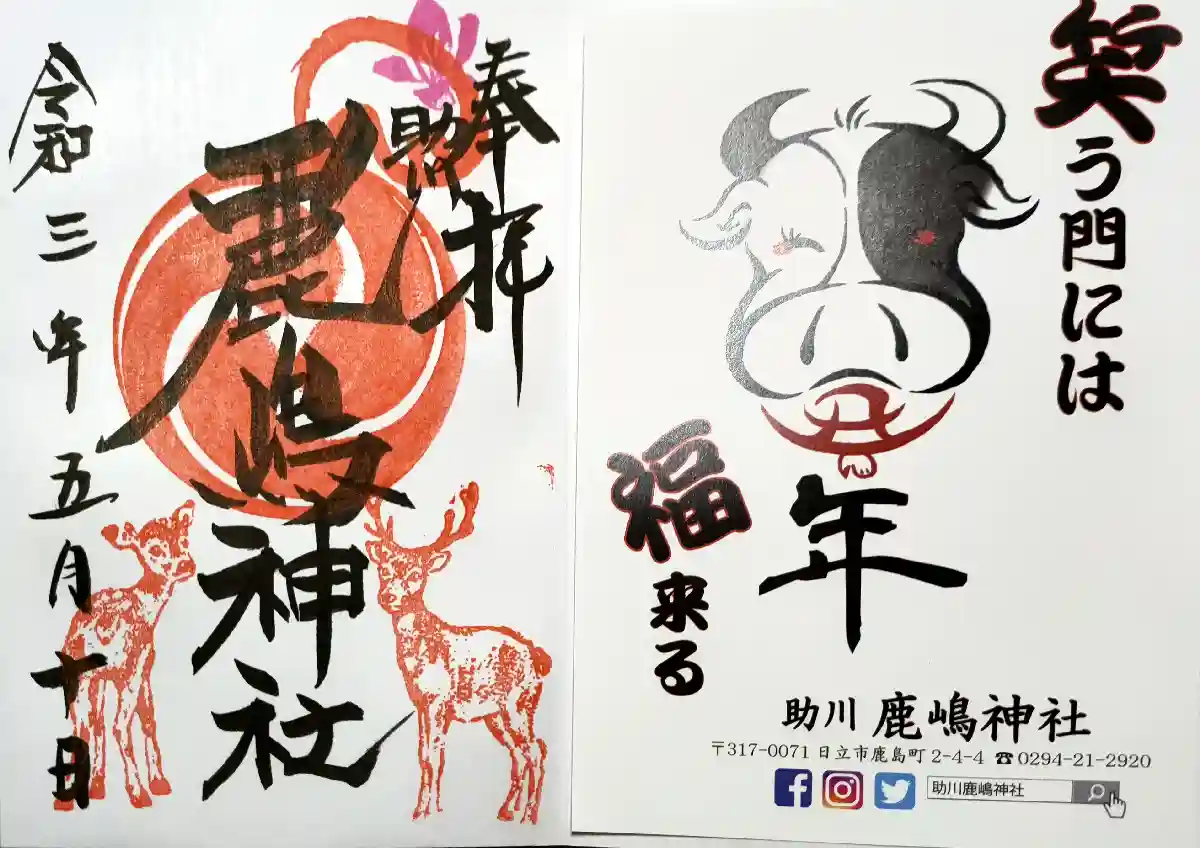 奉拝
助川
鹿嶋神社
令和三年五月十日
笑う門には
福来る
丑
年
助川 鹿嶋神社
〒317-0071 日立市鹿島町 2-4-4 ☎0294-21-2920
助川鹿嶋神社